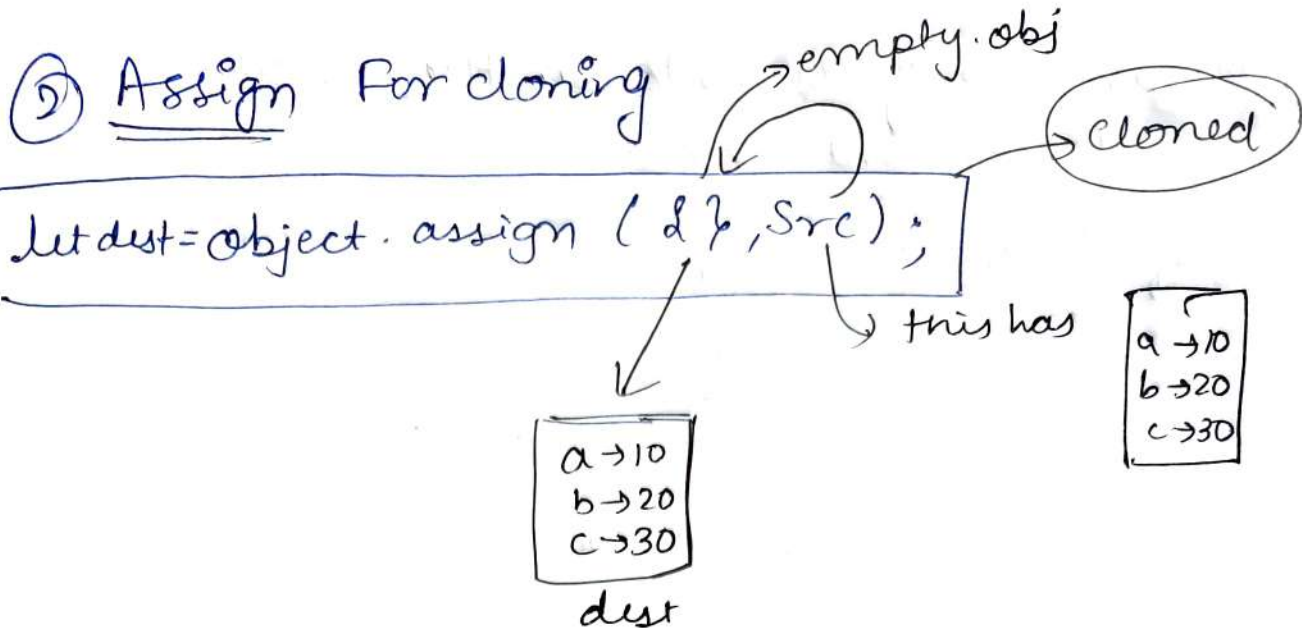 ② Assign For cloning
empty.obj
cloned
let dest = object. assign ( { } , Src ) ;
this has
a → 10
b → 20
c → 30
a → 10
b → 20
c → 30
dest